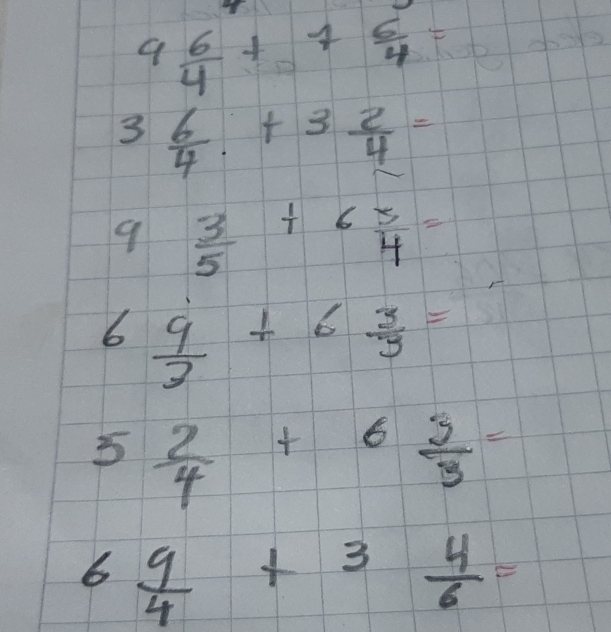 9 6/4 + 7 6/4 =
3 6/4 + 3 2/4 =
9 3/5 + 6 3/4 =
6 9/3 + 6 3/3 =
5 2/4 + 6 3/3 =
6 9/4 + 3 4/6 =